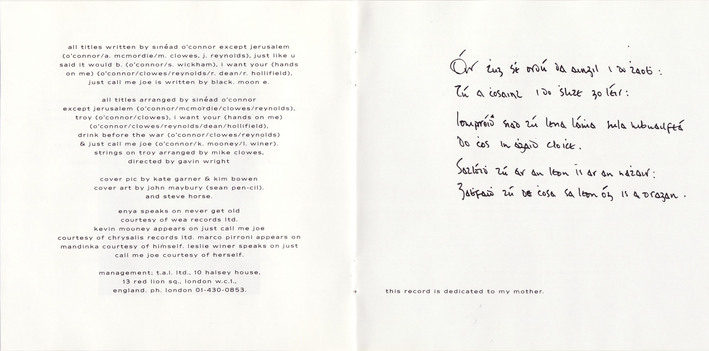 all titles written by sinéad o'connor except jerusalem
(o'connor/a. mcmordie/m. clowes, j. reynolds), just like u
said it would b. (o'connor/s. wickham), i want your (hands
on me) (o'connor/clowes/reynolds/r. dean/r. hollifield),
just call me joe is written by black. moon e.
all titles arranged by sinéad o'connor
except jerusalem (o'connor/mcmordie/clowes/reynolds),
troy (o'connor/clowes), i want your (hands on me)
(o'connor/clowes/reynolds/dean/hollifield).
drink before the war (o'connor/clowes/reynolds)
& just call me joe (o'connor/k. mooney/l. winer).
strings on troy arranged by mike clowes,
directed by gavin wright
cover pic by kate garner & kim bowen
cover art by john maybury (sean pen-cil).
and steve horse.
enya speaks on never get old
courtesy of wea records ltd.
kevin mooney appears on just call me joe
courtesy of chrysalis records ltd. marco pirroni appears on
mandinka courtesy of himself. leslie winer speaks on just
call me joe courtesy of herself.
management; t.a.l. ltd., 10 halsey house,
13 red lion sq., london w.c.1.,
england. ph. london 01-430-0853.
Óir ṫug sé ordú da aingil i do ṫaoḃ:
Tú a ċosaint i do ṡlite go léir:
siad tú lena láṁa sula mbuailfeá
Do ċos in aġaid cloice.
tú ar an leon is ar an naṫair:
tú de ċosa sa leon óg is a dragan.
this record is dedicated to my mother.